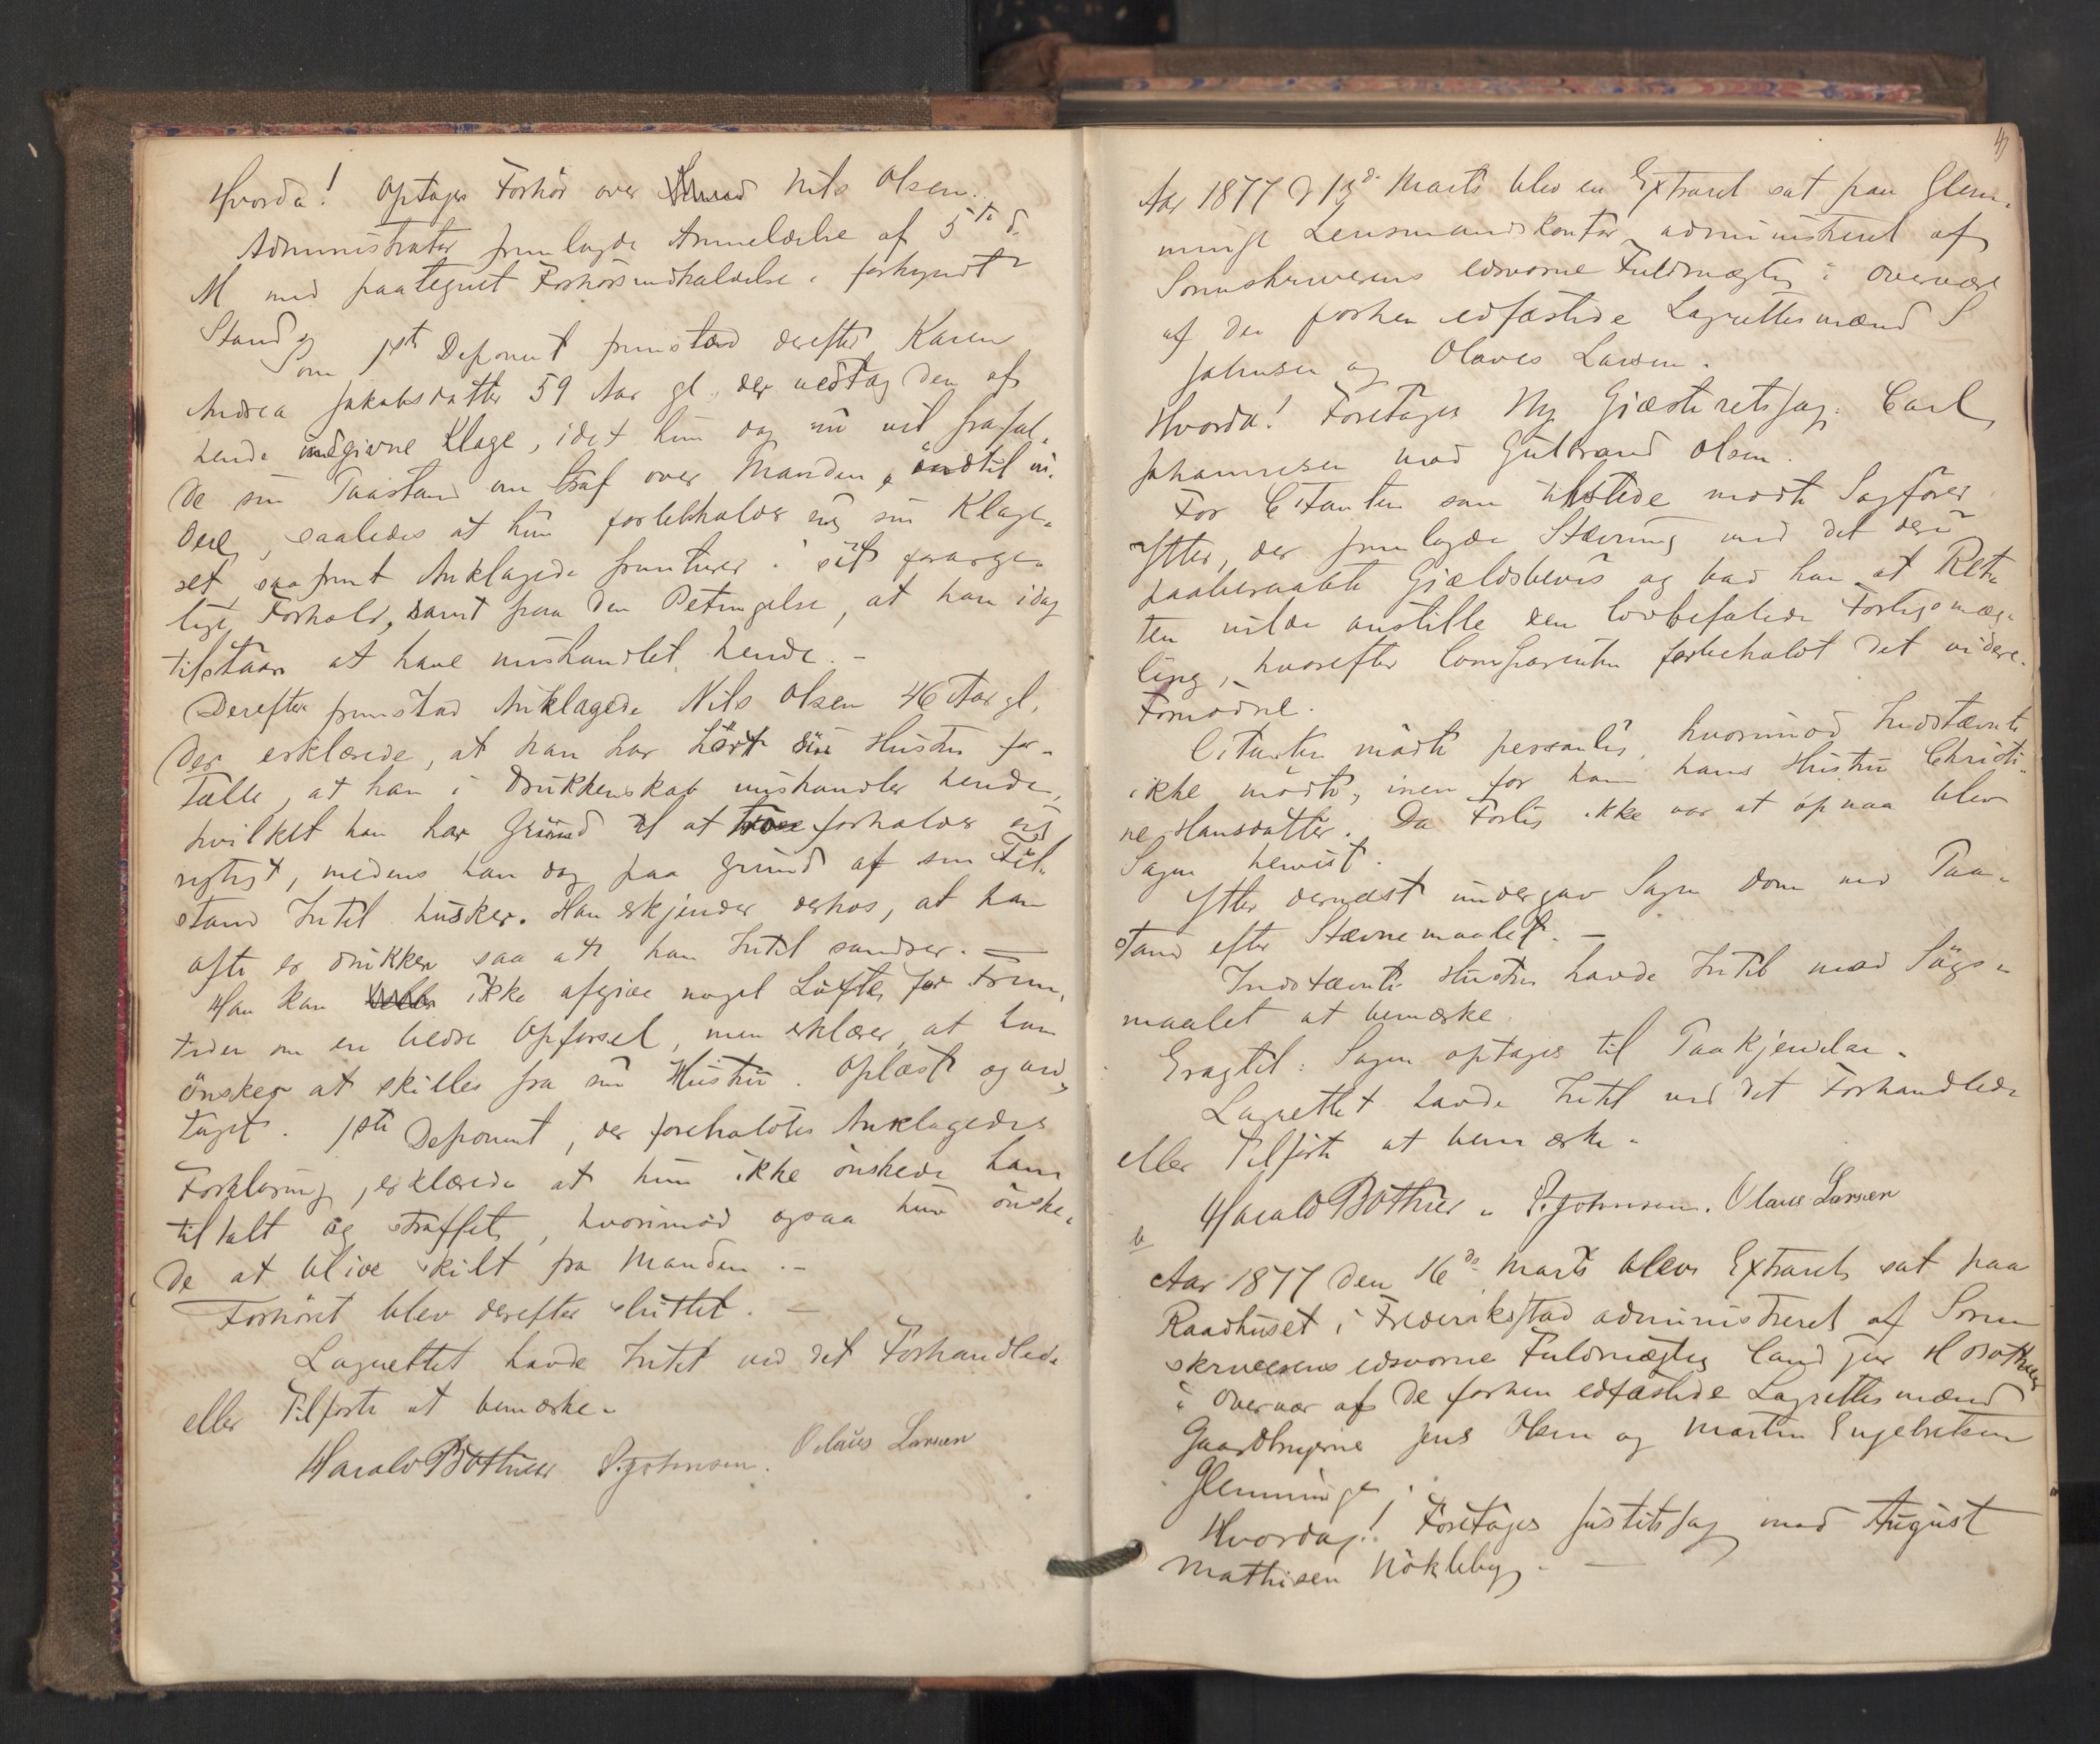 Hvorda! Optages Forhör over Nils Olsen.
Administrator fremlagde Anmeldelse af 5te d.
M med paategnet Forhörsindkaldelse i forkyndt
Stand og
Som 1ste Deponent fremstod derefter Karen
Andrea Jakobsdatter 59 Aar gl. der vedtog den af
hende indgivne Klage, idet hun dog nu vil frafal-
de sin Paastand om Straf over Manden, indtil vi-
dere, saaledes at hun forbeholder sig sin Klage-
ret saafremt Anklagede fremturer i sit forarge-
lige Forhold, samt paa den Betingelse, at han idag
tilstaar at have mishandlet hende. -
Derefter fremstod Anklagede Nils Olsen 46 Aar gl,
der erklærede, at han har hört sin Hustru for-
tælle, at han i Drukkenskab mishandler hende,
hvilket han har Grund til at troe forholder sig
rigtigt, medens han dog paa Grund af sin Til-
stand Intet husker. Han erkjender derhos, at han
ofte er drukken saa at han Intet sandser. -
Han kan ikke afgive noget Löfte for Frem-
tiden om en bedre Opförsel, men erklærer, at han
önsker at skilles fra sin Hustru. Oplæst og ved-
taget. 1ste Deponent, der foreholdtes Anklagedes
Forklaring, erklærede at hun ikke önskede ham
tiltalt og straffet, hvorimod ogsaa hun önske-
de at blive skilt fra Manden. -
Forhöret blev derefter sluttet. -
Lagrettet havde Intet ved det Forhandlede
eller Tilförte at bemærke.
Harald Bothner S. Johnsen. Olaus Larsen
Aar 1877 d 13d. Marts blev en Extraret sat paa Glem-
minge Lensmandskontor administreret af
Sorenskriverens edsvorne Fuldmægtig i Overvær
af de forhen edfæstede Lagrettesmænd S
Johnsen og Olaves Larsen.
Hvorda! Foretages Ny Gjæsteretssag: Carl
Johannesen mod Gulbrand Olsen.
For Citanten som tilstede mödte Sagförer
Ytter, der fremlagde Stævning med det deri
paaberaabte Gjældsbevis og bad han at Ret-
ten vilde anstille den lovbefalede Forligsmæg-
ling, hvorefter Comparenten forbeholdt det videre
Fornödne.
Citanten mödte personlig, hvorimod Indstævnte
ikke mödte, men for ham hans Hustru Christi-
ne Hansdatter. Da Forlig ikke var at opnaa blev
Sagen henvist.
Ytter dernæst undergav Sagen Dom med Paa-
stand efter Stævnemaalet. -
Indstævntes Hustru havde Intet mod Sögs-
maalet at bemærke.
Eragtet: Sagen optages til Paakjendelse.
Lagrettet havde Intet ved det Forhandlede
eller Tilförte at bemærke.
Harald Bothner. S. Johnsen. Olaus Larsen
Aar 1877 den 16de Marts blev Extraret sat paa
Raadhuset i Frederikstad administreret af Soren
skriverens edsvorne Fuldmægtig Cand jur H Bothner
i Overvær af de forhen edfæstede Lagrettesmænd
Gaardbrugerne Jens Olsen og Martin Engebretsen
Glemminge.
Hvorda! Foretages Justitssag mod August
Mathisen Nökleby. -